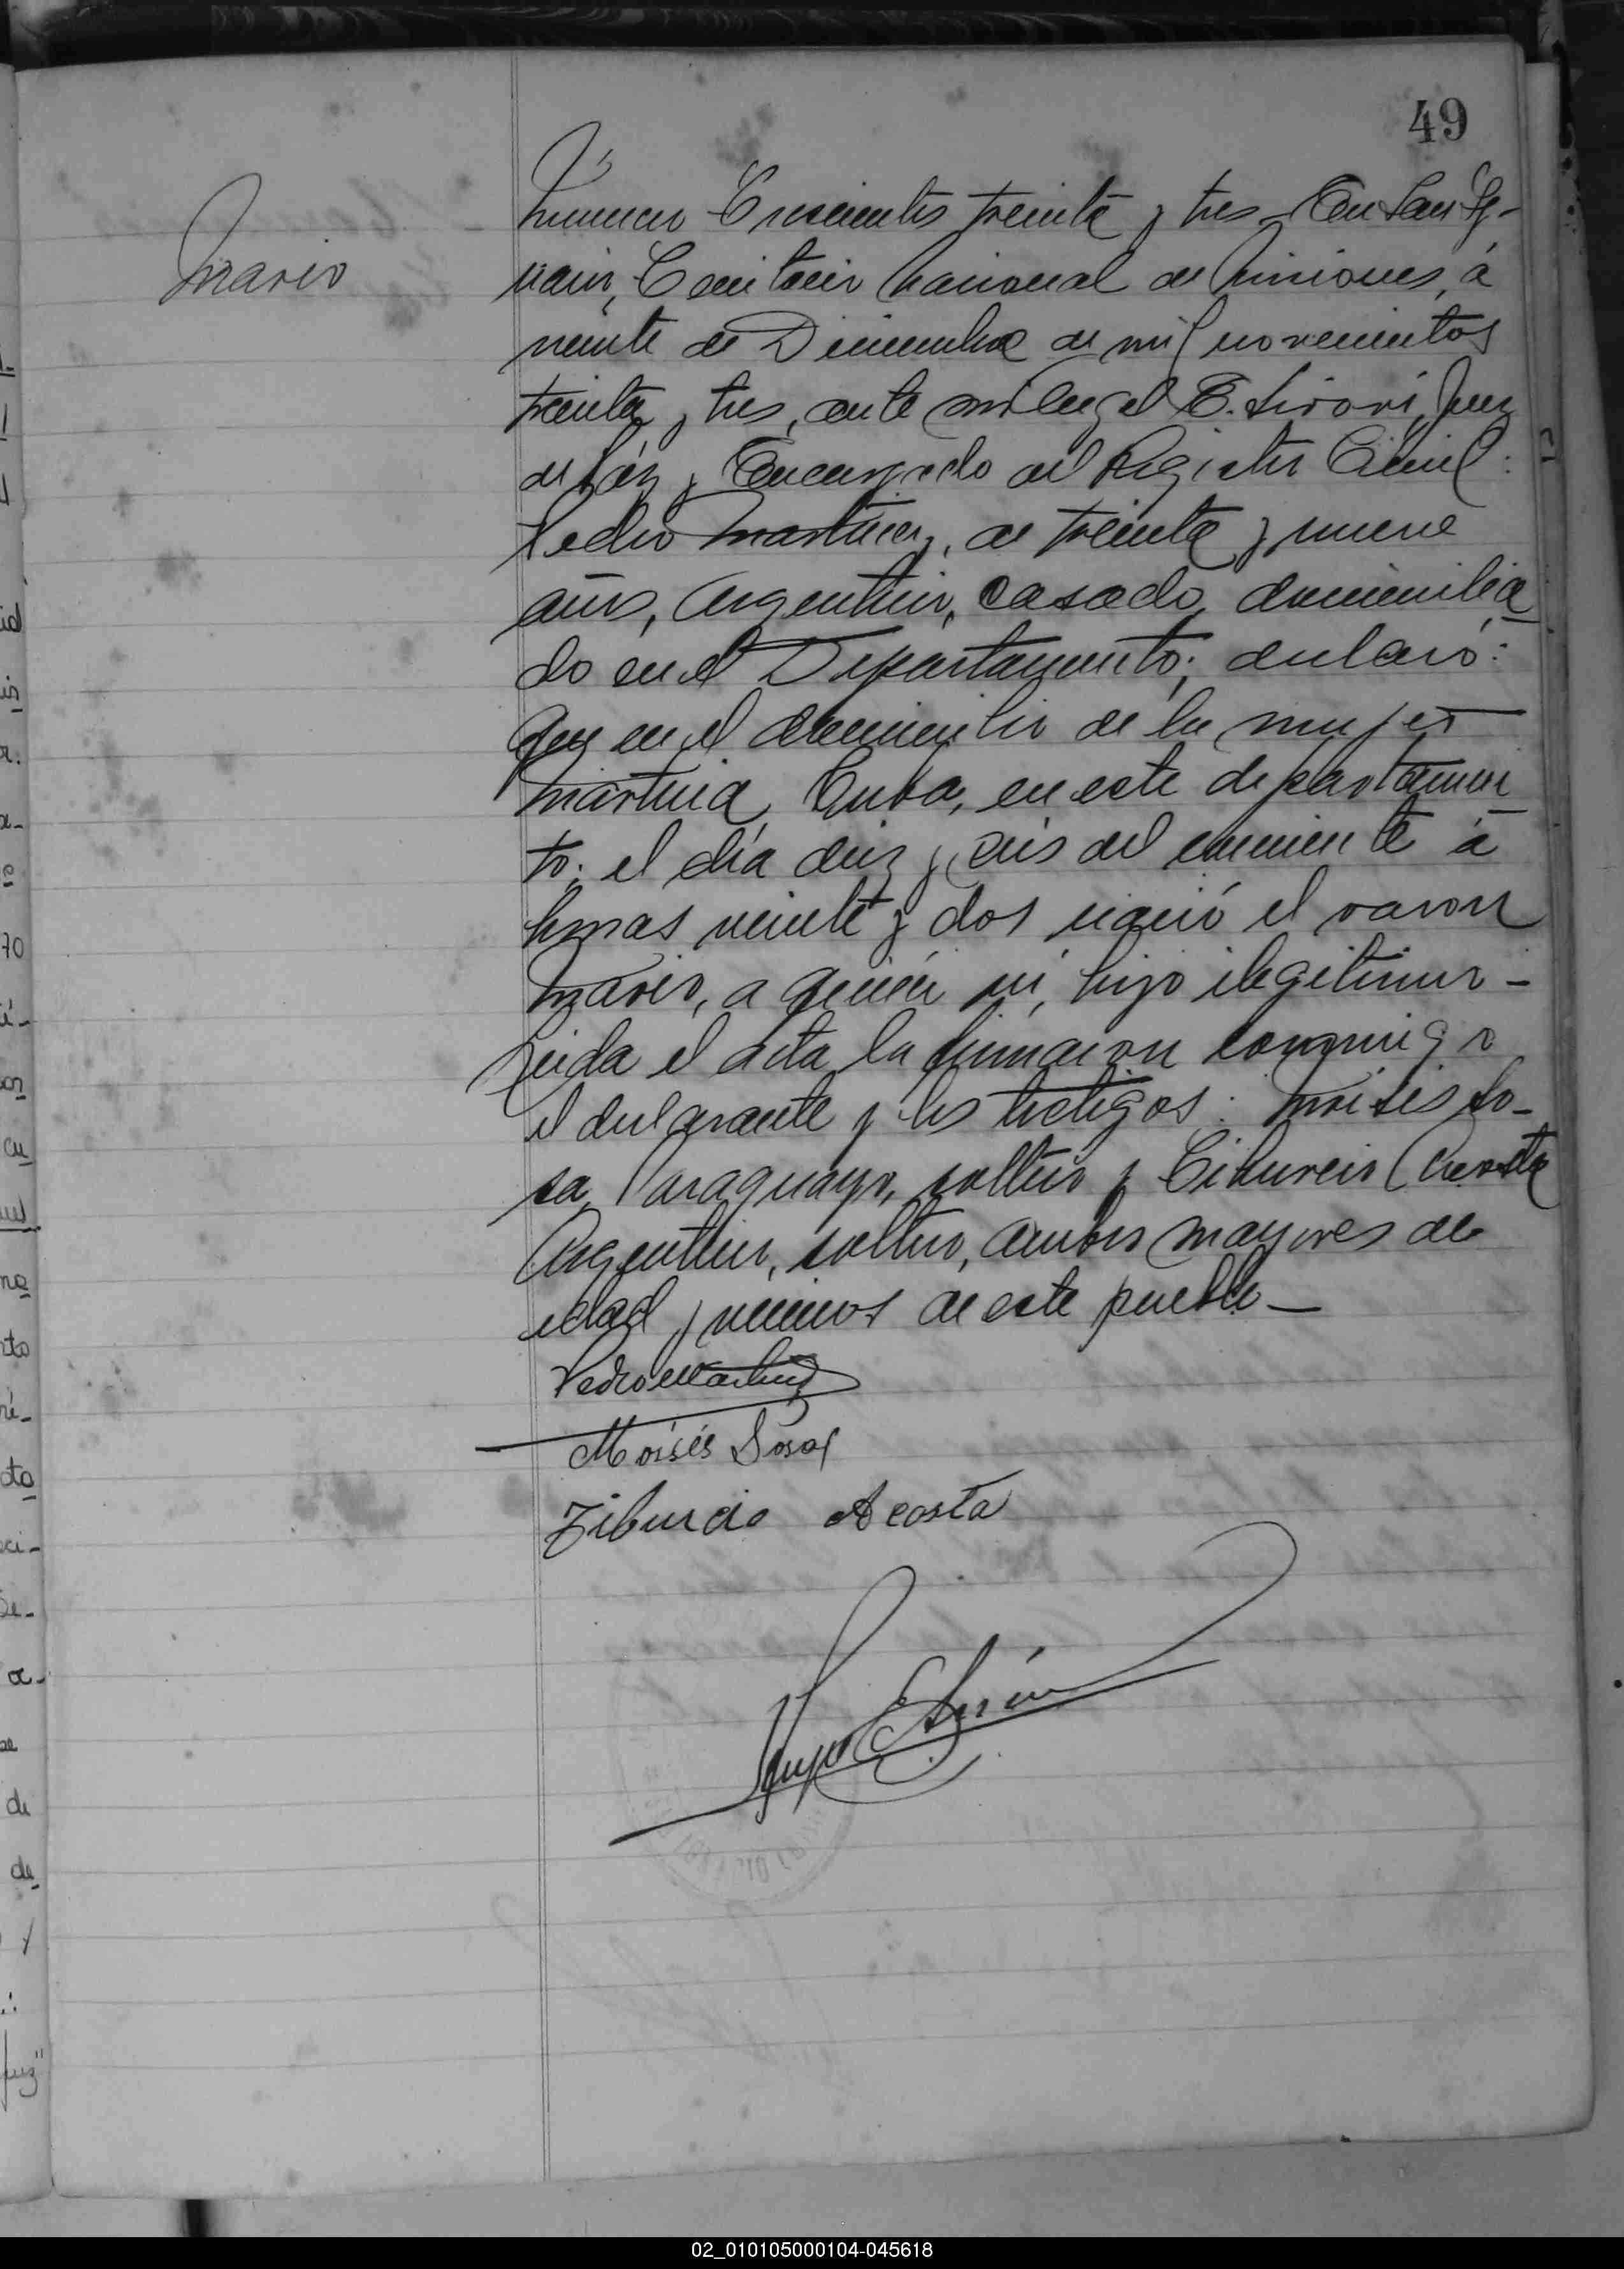 49
Mario
Número Trescientos treinta y tres. En San Ig-
nacio, Territorio Nacional de Misiones, á
veinte de Diciembre de mil novecientos
treinta y tres, ante mi E. Sirori, Juez
de Páz y Encargado del Registro Civil:
Pedro Martinez, de treinta y nueve
años, Argentino, casado, domicilia
do en el Departamento; declaró:
Que en el domicilio de la mujer
Martina Cuba, en este departamen
to; el día diez y seis del corriente á
horas veinte y dos nació el varon
Mario, a quien vi, hijo ilegitimo -
Leida el acta la firmaron conmigo
el declarante y los testigos: Moisés So-
sa, Paraguayo, soltero y Tiburcio Acosta
Argentino, soltero, ambos mayores de
edad y vecinos de este pueblo—
Pedro Martinez
Moisés Sosa
Tiburcio Acosta
02_010105000104-045618